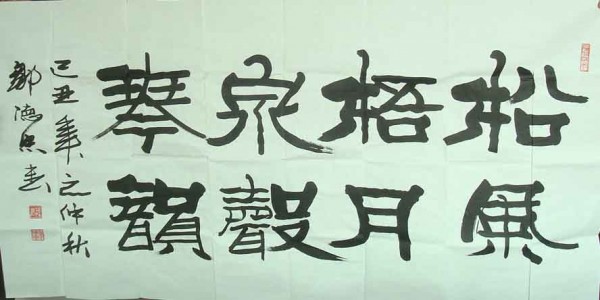 松風
梧月
泉聲
琴韻
己丑年之仲秋
書